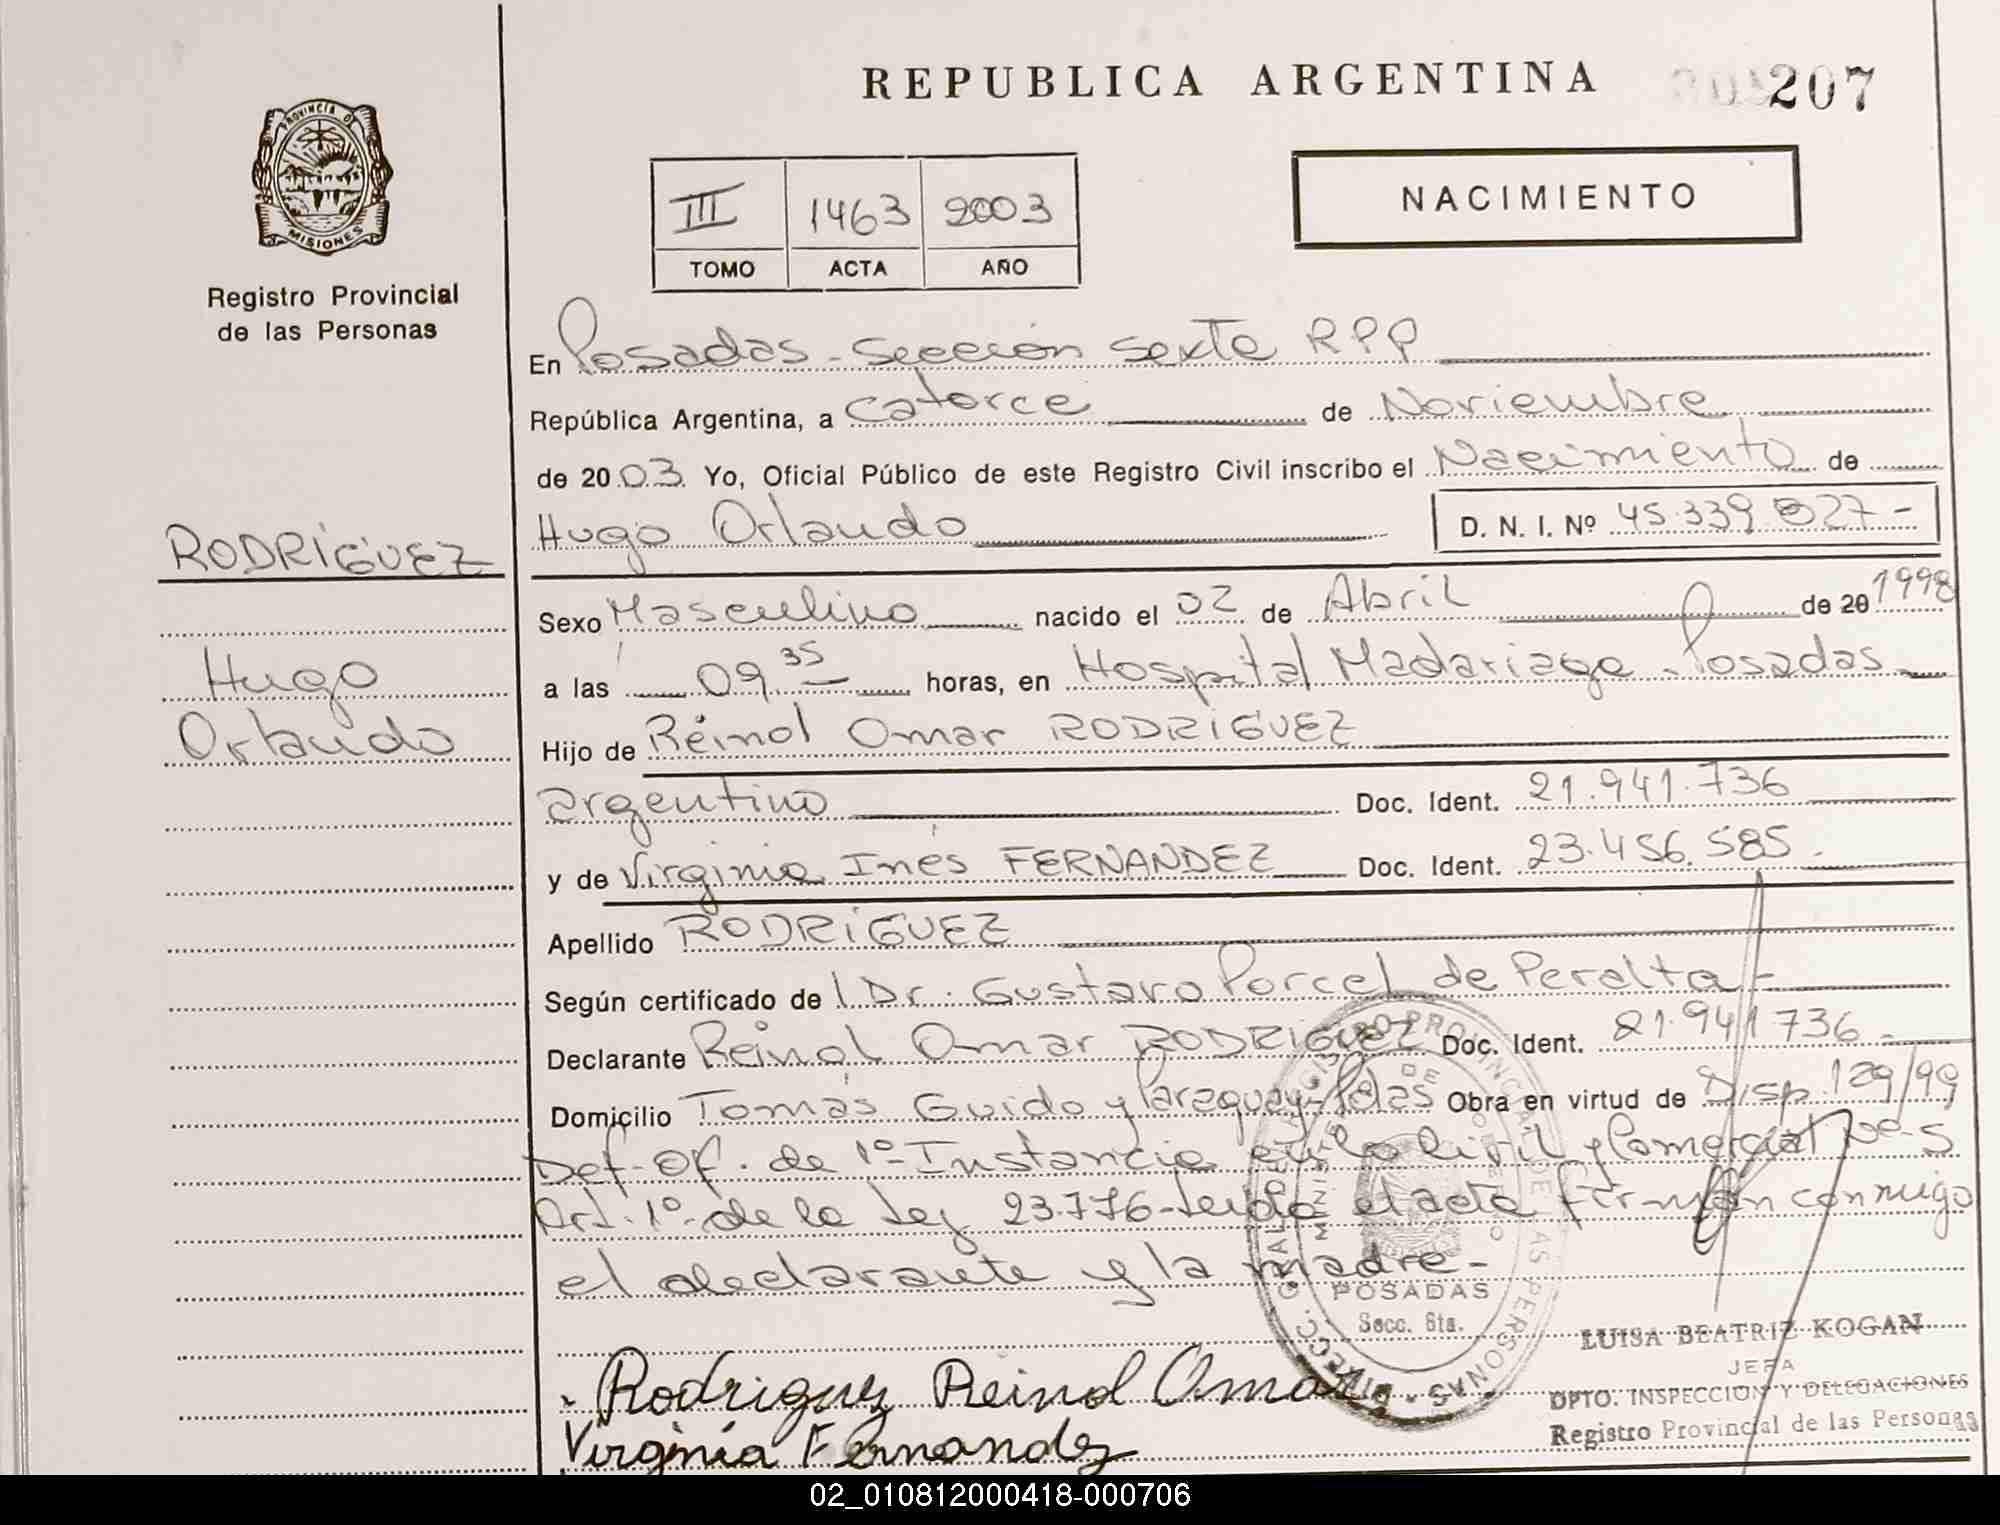 REPUBLICA ARGENTINA
207
PROVINCIA DE
MISIONES
Registro Provincial
de las Personas
III 1463 2003
TOMO ACTA AÑO
NACIMIENTO
En Posadas - Sección Sexta RPP
República Argentina, a Catorce de Noviembre
de 2003 Yo, Oficial Público de este Registro Civil inscribo el Nacimiento de
Hugo Orlando D. N. I. Nº 45.339.827-
RODRÍGUEZ
Hugo
Orlando
Sexo Masculino nacido el 02 de Abril de 20 1998
a las 09.35 horas, en Hospital Madariaga - Posadas
Hijo de Reinol Omar RODRÍGUEZ
argentino Doc. Ident. 21.941.736
y de Virginia Inés FERNANDEZ Doc. Ident. 23.456.585
Apellido RODRÍGUEZ
Según certificado de l Dr. Gustavo Porcel de Peralta -
Declarante Reinol Omar RODRIGUEZ Doc. Ident. 21.941736-
Domicilio Tomás Guido y Paraguay - Pdas Obra en virtud de Disp. 129/99
Def. Of. de 1º Instancia en lo Civil y Comercial Nº 5
Art. 1º de la Ley 23.776 - Leída el acta firman conmigo
el declarante y la madre -
POSADAS
Secc. 6ta.
LUISA BEATRIZ KOGAN
JEFA
DPTO. INSPECCION Y DELEGACIONES
Registro Provincial de las Personas
Rodriguez Reinol Omar
Virginia Fernandez
02_010812000418-000706